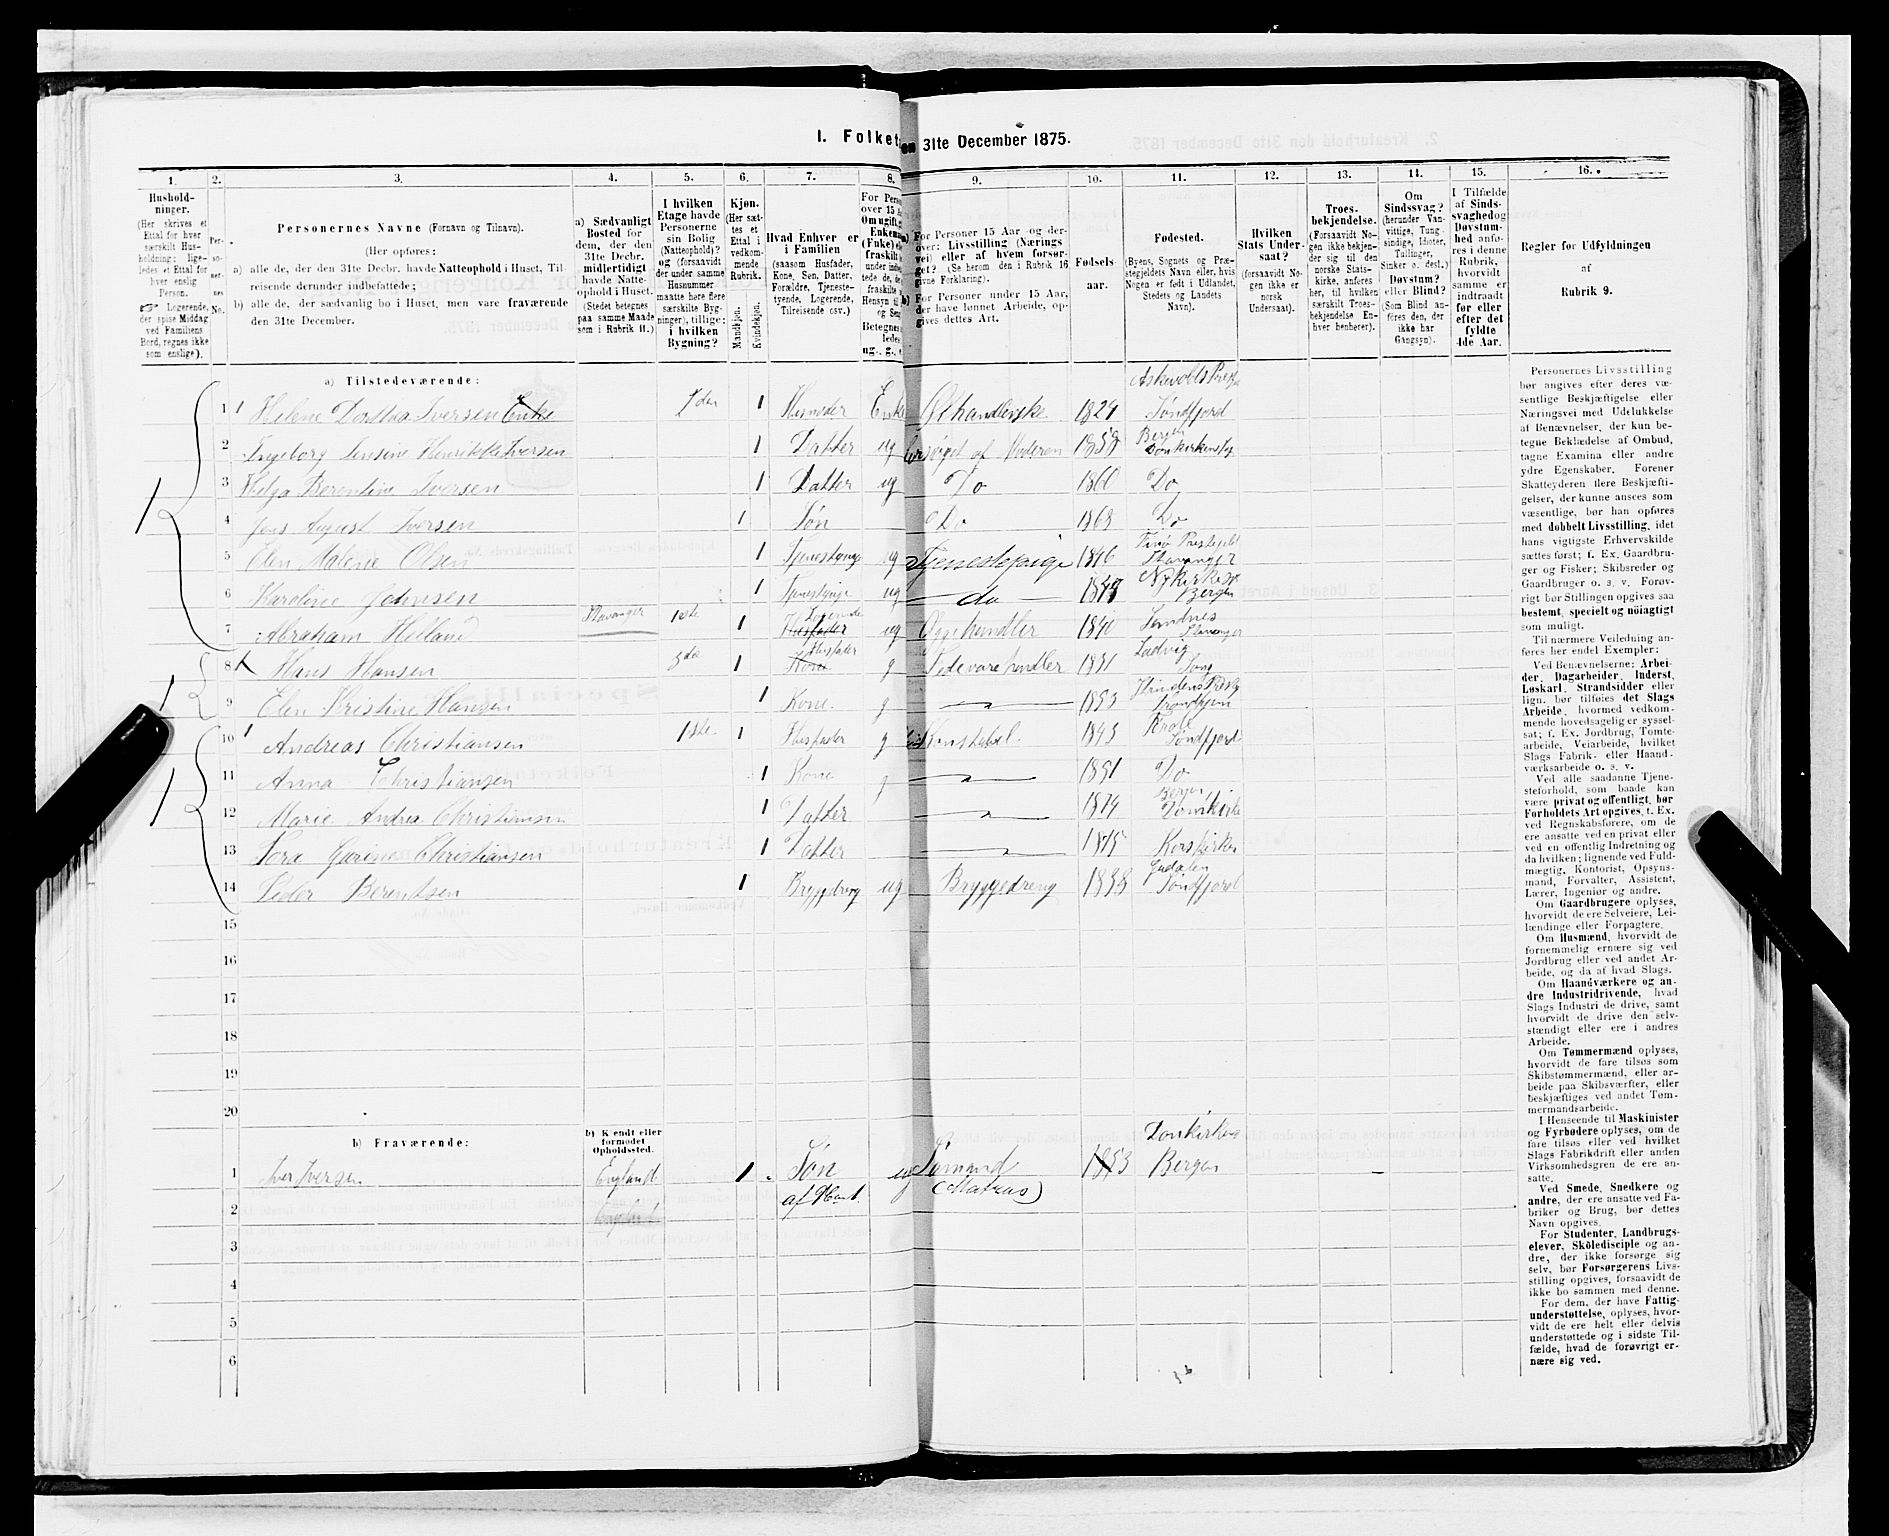 1. Folket
en 31te December 1875.
1.
2.
3.
4.
5.
6.
7.
8.
9.
10.
11.
12.
13.
14.
15.
16.
Hushold-
ninger.
(Her skrives et
Ettal for hver
særskilt Hus-
holdning; lige-
ledes et Ettal for
hver enslig
Person.
Logerende,
der spise Middag
ved Familiens
Bord, regnes ikke
som enslige).
Per-
so-
ner-
nes
No.
Personernes Navne (Fornavn og Tilnavn).
(Her opføres:
a) alle de, der den 31te Decbr. havde Natteophold i Huset, Til-
reisende derunder indbefattede;
b) alle de, der sædvanlig bo i Huset, men vare fraværende
den 31te December.
a) Sædvanligt
Bosted for
dem, der den
31te Decbr.
midlertidigt
havde Natte-
ophold i Huset.
(Stedet betegnes
paa samme Maade
som i Rubrik 11.)
I hvilken
Etage havde
Personerne
sin Bolig
(Natteophold)?
og (forsaavidt
der under samme
Husnummer
maatte høre flere
særskilte Byg-
ninger), tillige:
i hvilken
Bygning?
Kjøn.
(Her sæt-
tes et
Ettal i
vedkom-
mende
Rubrik.
Mandkjøn.
Kvindekjøn.
Hvad Enhver er
i Familien
(saasom Husfader,
Kone, Søn, Datter,
Forældre, Tjeneste-
tyende, Logerende,
Tilreisende csv.)
For Perso
over 15 A
Om ugift,
Enkem
(Enke)
fraskilt
Betegnes
ledes
ug., g., e
For Personer 15 Aar og der-
over: Livsstilling (Nærings
vei) eller af hvem forsør-
get? (Se herom den i Rubrik 16
givne Forklaring).
For Personer under 15 Aar,
der have lønnet Arbeide, op-
gives dettes Art.
Fødsels-
aar.
Fødested.
(Byens, Sognets og Præ-
stegjeldets Navn eller, hvis
Nogen er født i Udlandet,
Stedets og Landets
Navn).
Hvilken
Stats Under-
saat?
(forsaavidt No-
gen ikke er
norsk
Undersaat).
Troes-
bekjendelse.
(Forsaavidt No-
gen ikke bekjen-
der sig til den
norske Stats-
kirke, anføres
her, til hvilken
særskilt Troes-
bekjendelse En-
hver henhører).
Om
Sindssvag?
(herunder Van-
vittige, Tung
sindige, Idioter,
Tullinger,
Sinker o. desl.)
Døvstum?
eller Blind?
(Som Blind an-
føres den, der
ikke har
Gangsyn).
I Tilfælde
af Sinds-
svaghed og
Døvstum-
hed anfø-
res i denne
Rubrik,
hvorvidt
samme er
indtraadt
før eller
efter det
fyldte
4de Aar.
Regler for Udfyldningen
af
Rubrik 9.
a) Tilstedeværende:
Askevolds
1 1 Helene Dorthea Iversen Enke 1 Husmoder Enke Ølhandlerske 1829 Søndfjord
2 Ingeborg Jensine Henriette Iversen 1 Datter ug Forsørget af Moderen 1858 Bergen
3 Helga Berentine Iversen 1 Datter ug Do 1860 Do
4 Jens August Iversen 1 Søn Do 1868 Do
5 Elen Malene Olsen 1 ug Tjenestepige 1846 Stavanger
6 Karoline Johnsen 1 ug do Bergen
7 Abraham Helland Stavanger 1ste 1 Logerende Husfader ug 1840 Sandnes Stavanger
8 Hans Hansen 1 Husfader Kone g Fedevarehandler 1831 Ladvig Sogn
9 Elen Kristine Hansen 1 Kone g 1853
10 1 Andreas Christiansen 1ste 1 Husfader g Konstabel 1843 Søndfjord
11 Anna Christiansen 1 Kone g 1851 Do
12 Marie Andrea Christiansen 1 Datter 1874 Bergen Domkirke
13 Tora Garine Christiansen 1 Datter 1875 Korskirken
14 Peder Berentsen 1 ug Bryggedreng Søndfjord
15
16
17
18
19
20
b) Fraværende:
b) Kjendt eller
formodet
Opholdssted.
1 Iver Iversen England 1 Søn ug Sømand 1853 Bergen
2 af No 1. (Matros)
3
4
5
6
Personernes Livsstilling
bør angives efter deres væ-
sentlige Beskjæftigelse eller
Næringsvei med Udelukkelse
af Benævnelser, der kun be-
tegne Beklædelse af Ombud,
tagne Examina eller andre
ydre Egenskaber. Forener
Skatteyderen flere Beskjæfti-
gelser, der kunne ansees som
væsentlige, bør han opføres
med dobbelt Livsstilling, idet
hans vigtigste Erhvervskilde
sættes først; f. Ex. Gaardbru-
ger og Fisker; Skibsreder og
Gaardbruger o. s. v. Forøv-
rigt bør Stillingen opgives saa
bestemt, specielt og nöiagtigt
som muligt.
Til nærmere Veiledning an-
føres her endel Exempler:
Ved Benævnelserne: Arbei-
der, Dagarbeider, Inderst,
Løskarl, Strandsidder eller
lign. bør tilføies det Slags
Arbeide, hvormed vedkom-
mende hovedsagelig er syssel-
sat; f. Ex. Jordbrug, Tomte-
arbeide, Veiarbeide, hvilket
Slags Fabrik- eller Haand-
værksarbeide o. s. v.
Ved alle saadanne Tjene-
steforhold, som baade kan
være privat og offentligt, bør
Forholdets Art opgives, f. Ex.
ved Regnskabsførere, om de
ere ansatte ved en privat eller
ved en offentlig Indretning og
da hvilken; lignende ved Fuld-
mægtig, Kontorist, Opsyns-
mand, Forvalter, Assistent,
Lærer, Ingeniør og andre.
Om Gaardbrugere oplyses,
hvorvidt de ere Selveiere, Lei-
lændinge eller Forpagtere.
Om Husmænd, hvorvidt de
fornemmelig ernære sig ved
Jordbrug eller ved andet Ar-
beide, og da af hvad Slags.
Om Haandværkere og an-
dre Industridrivende, hvad
Slags Industri de drive, samt
hvorvidt de drive den selv-
stændigt eller ere i andres
Arbeide.
Om Tømmermænd oplyses,
hvorvidt de fare tilsøs som
Skibstømmermænd, eller ar-
beide paa Skibsværfter, eller
beskjæftiges ved andet Tøm-
mermandsarbeide.
I Henseende til Maskinister
og Fyrbødere oplyses, om de
fare tilsøs eller ved hvilket
Slags Fabrikdrift eller anden
Virksomhedsgren de ere an-
satte.
Ved Smede, Snedkere og
andre, der ere ansatte ved Fa-
briker og Brug, bør dettes
Navn opgives.
For Studenter, Landbrugs-
elever, Skölediscipler og an-
dre, der ikke forsørge sig
selv, bør Forsørgerens Livs-
stilling opgives, forsaavidt de
ikke bo sammen med denne.
For dem, der have Fattig-
understøttelse, oplyses, hvor-
vidt de ere helt eller delvis
understøttede og i sidste Til-
fælde, hvad de forøvrigt er-
nære sig ved.